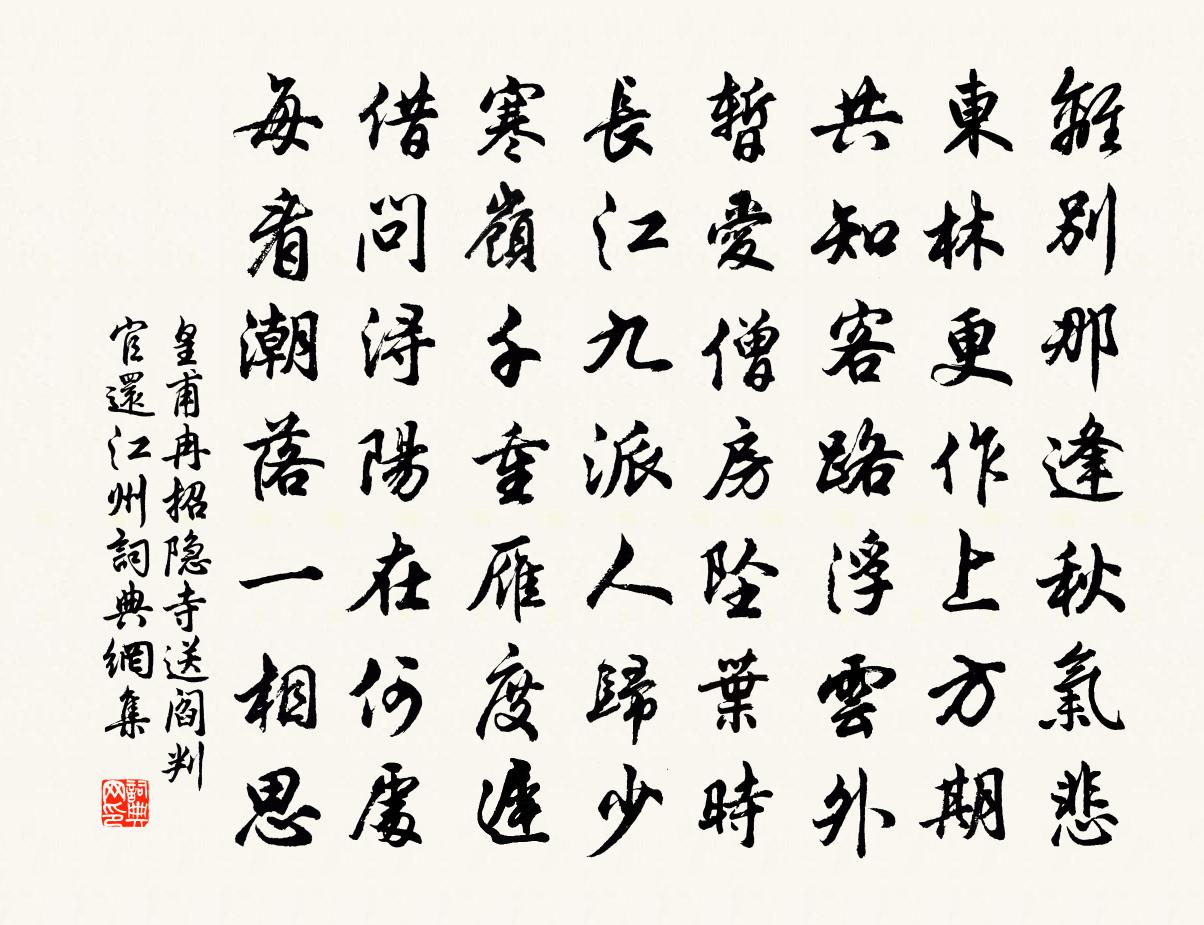 離別那逢秋氣悲
東林更作上方期
共知客路浮雲外
暫愛僧房墜葉時
長江九派人歸少
寒嶺千重雁度遲
借問潯陽在何處
每看潮落一相思
皇甫冉招隐寺送阎判
官還江州詞典網集
詞典
网印